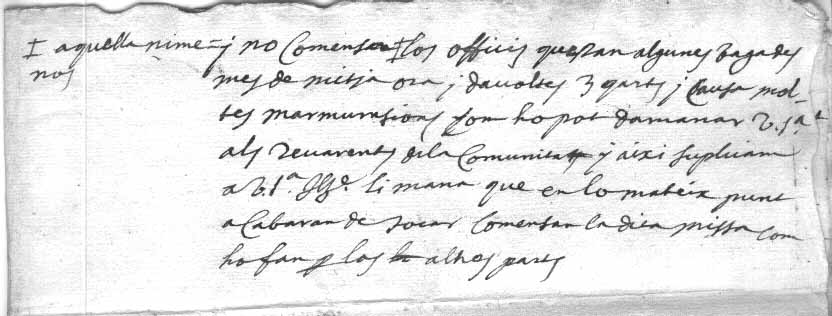 ‡ aquella nime=
nos
y no Comensen ‡ los officis que stan algunes vagades
mes de mitja ora y davoltes 3 qarts y Causa mol-
tes marmurasions Com ho pot damanar V. S.ª
als reverents de la Comunitat y aixi suplicam
a V. S.ª Illª. li mana que en lo mateix punt
acabaran de tocar Comensan la dita missa Com
ho fan p los altres parts